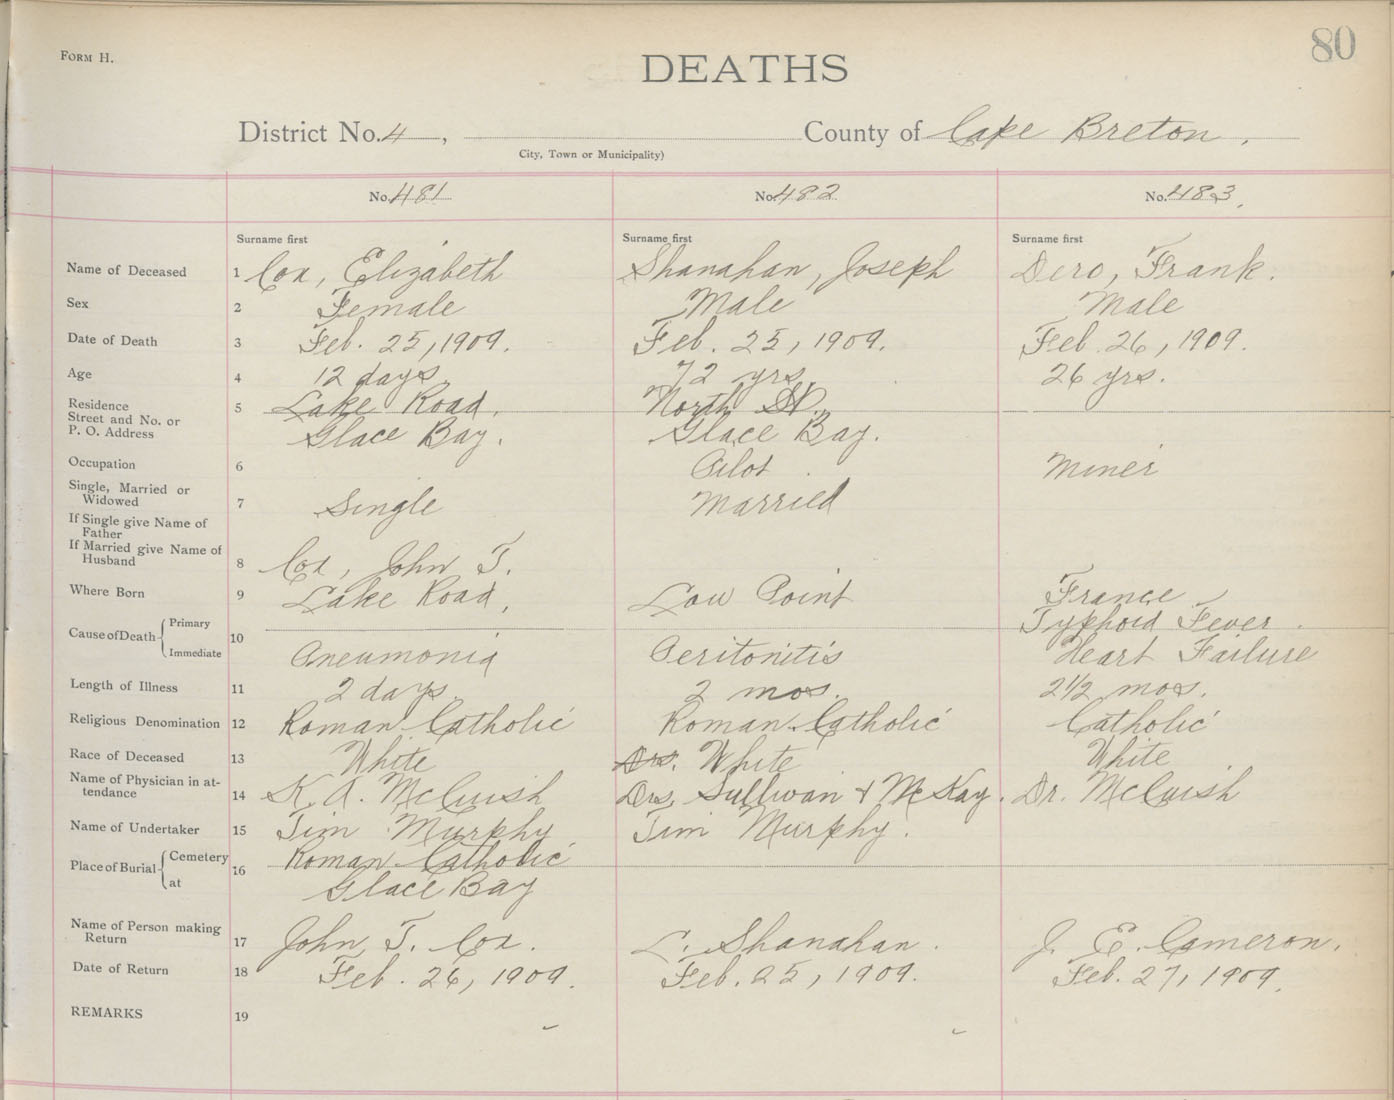 80
FORM H.
DEATHS
District No. 4, County of Cape Breton.
City, Town or Municipality)
No. 481 No. 482 No. 483.
Surname first Surname first Surname first
Name of Deceased 1 Cox, Elizabeth Shanahan, Joseph Dero, Frank.
Sex 2 Female Male Male
Date of Death 3 Feb. 25, 1909. Feb. 25, 1909. Feb. 26, 1909.
Age 4 12 days 72 yrs. 26 yrs.
Residence 5 Lake Road. North St.
Street and No. or
P. O. Address Glace Bay. Glace Bay.
Occupation 6 Pilot Miner
Single, Married or
Widowed 7 Single Married
If Single give Name of
Father
If Married give Name of
Husband 8 Cox, John T.
Where Born 9 Lake Road, Low Point France
Cause of Death Primary 10 Typhoid Fever.
Immediate Pneumonia Peritonitis Heart Failure
Length of Illness 11 2 days. 2 mos. 2 1/2 mos.
Religious Denomination 12 Roman Catholic Roman Catholic Catholic
Race of Deceased 13 White Drs. White White
Name of Physician in at-
tendance 14 K. A. McCuish Drs. Sullivan & McKay. Dr. McCuish
Name of Undertaker 15 Tim Murphy Tim Murphy.
Place of Burial Cemetery 16 Roman Catholic
at Glace Bay
Name of Person making
Return 17 John T. Cox. L. Shanahan. J. E. Cameron.
Date of Return 18 Feb. 26, 1909. Feb. 25, 1909. Feb. 27, 1909.
REMARKS 19